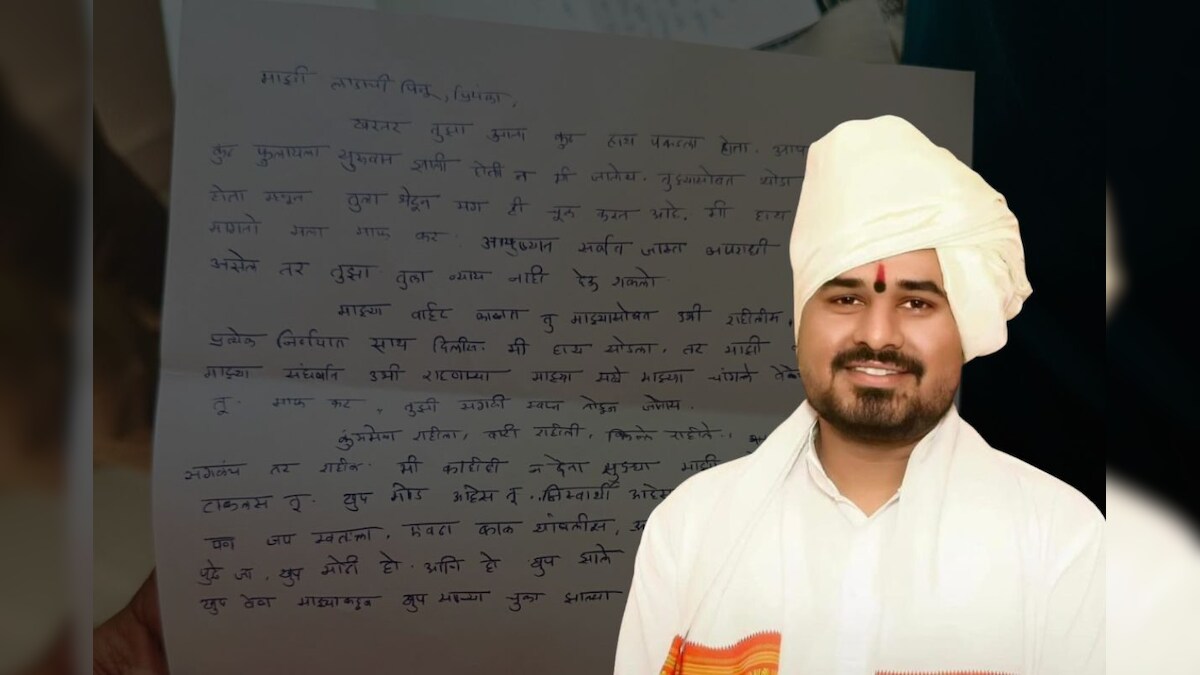 माझी लाडाची पिनू, प्रियंका,
खरतर तुझा आता कुठ हात पकडला होता. आप
कुठ फुलायला सुरुवात झाली होती न मी जातोय. तुझ्यासोबत थोडा
होता म्हणून तुला भेटून मग ही चूक करत आहे. मी हात
मागतो मला माफ कर. आयुष्यात सर्वात जास्त अपराधी
असेल तर तुझा तुला न्याय नाही देऊ शकलो.
माझ्या वाईट काळात तु माझ्यासोबत उभी राहीलीस.
प्रत्येक निर्णयात साथ दिलीस. मी हात सोडला, तर माझी
माझ्या संघर्षात उभी माझ्या मध्ये माझ्या चांगले
तू. माफ कर, तुझी सगळी स्वप्न तोडून जातोय.
कुंभमेळा राहीला, वारी राहीली, किल्ले राहीले.
सगळंच तर राहील. मी काहीही न देता तुझ्या माझी
टाकलस तू. खुप गोड आहेस तू. निस्वार्थी आहेस
पण जप स्वतःला. एवढा काळ थांबलीस,
पुढे जा, खुप मोठी हो. आणि हो खुप झाले
खुप वेळा माझ्याकडून खुप साऱ्या चुका झाल्या